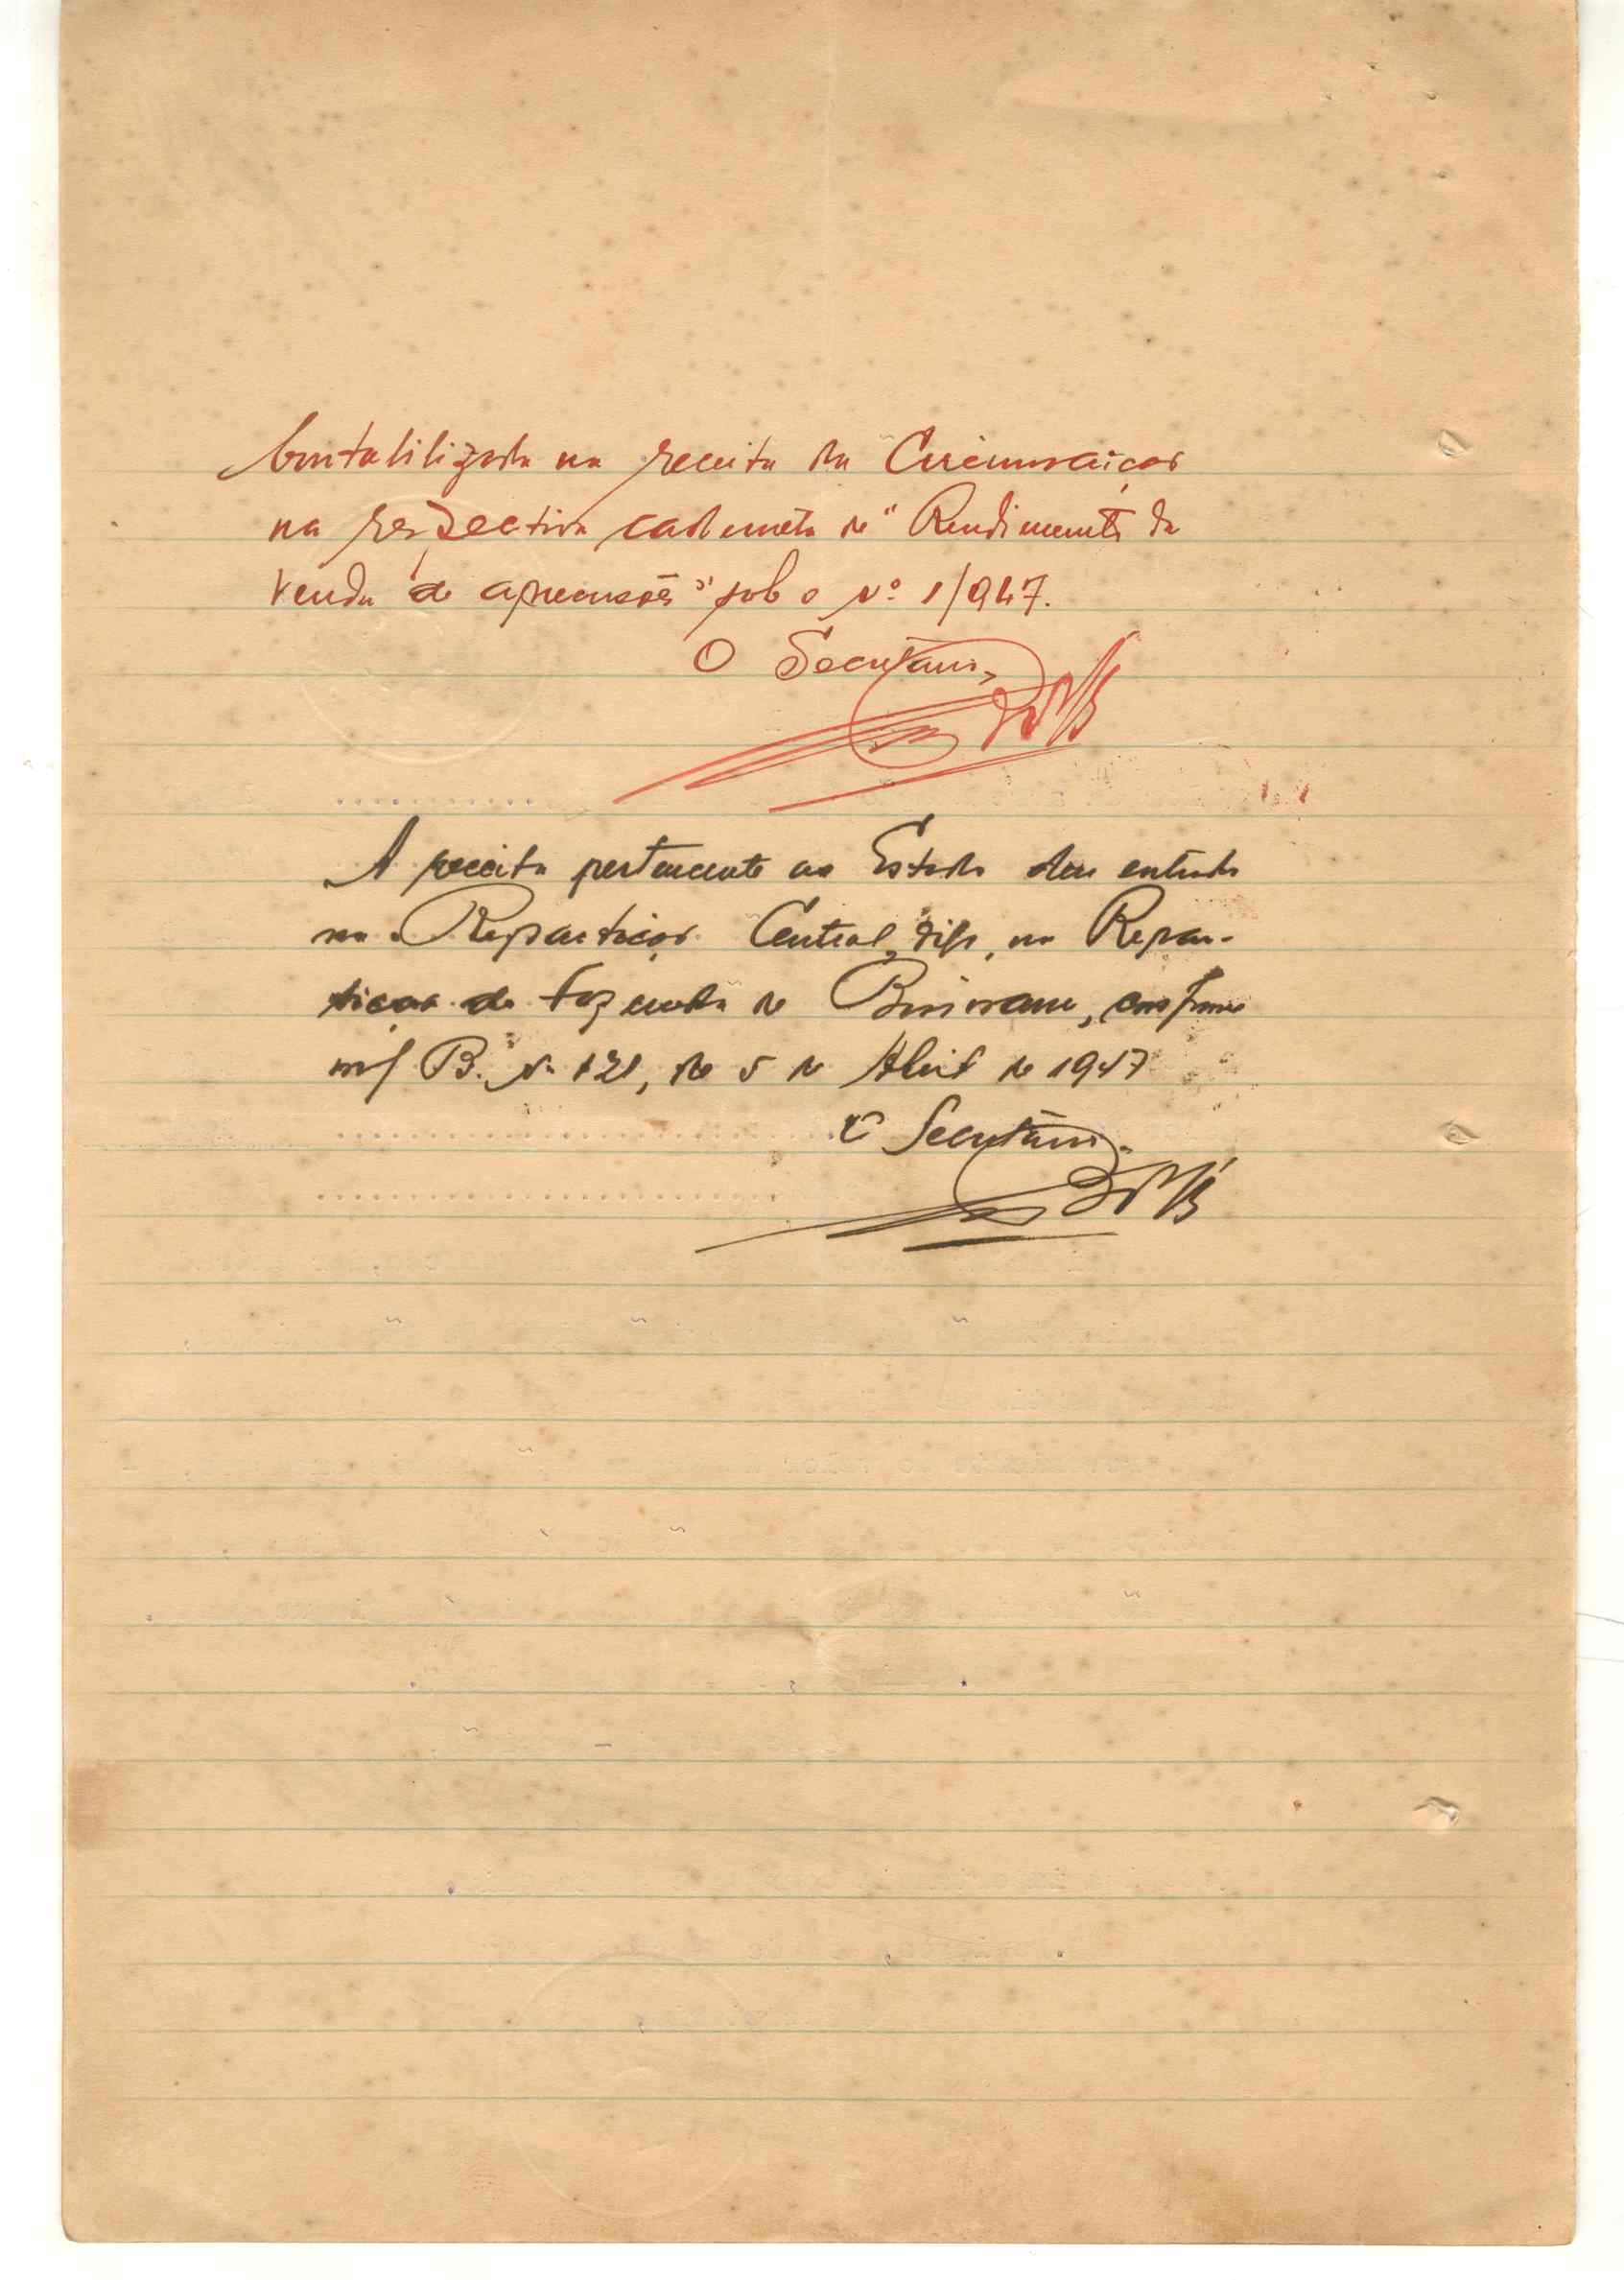 Contabilizada na receita da Circunscrição
na respectiva caderneta de "Rendimento da
venda de apreensões" sob o Nº 1/947.
O Secretário,
A receita pertencente ao Estado deu entrada
na Repartição Central, digo, na Repar-
tição de Fazenda de, conforme
n/ B. Nº 121, de 5 de Abril de 1947
O Secretário.